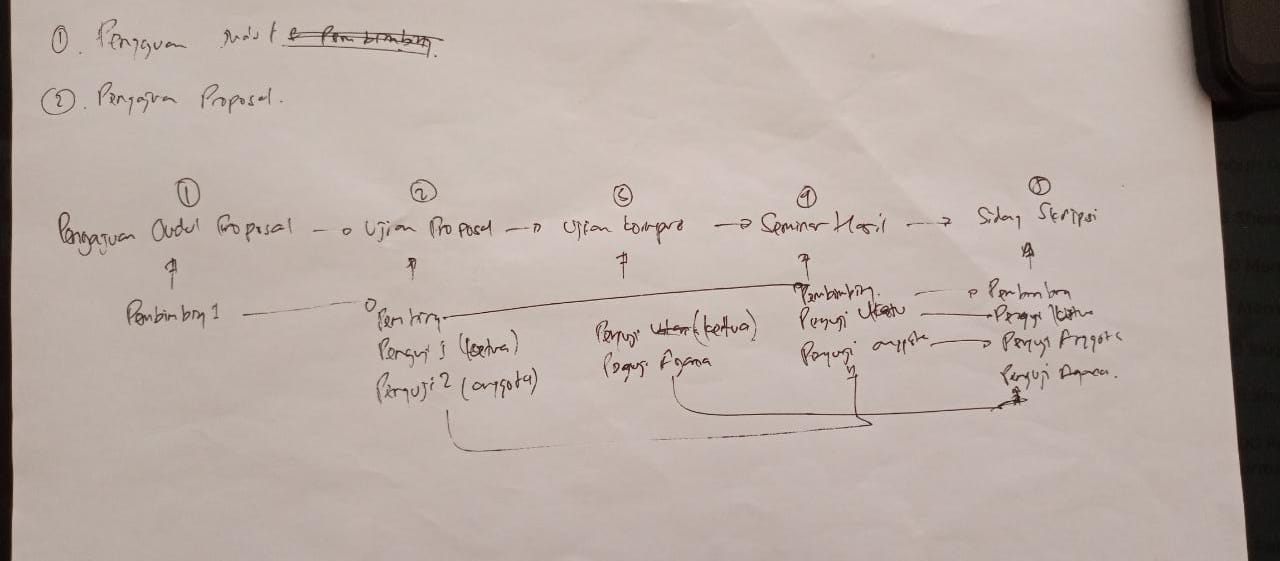 ① Pengajuan Judul
② Pengajuan Proposal.
① ② ③ ④ ⑤
Pengajuan Judul Proposal → Ujian Proposal → Ujian kompre → Seminar Hasil → Sidang Skripsi
Pembimbing 1
Pembimbing
Penguji 1 (ketua)
Penguji 2 (anggota)
Penguji (ketua)
Penguji Agama
Pembimbing
Penguji
Penguji anggota
Pembimbing
Penguji
Penguji Anggota
Penguji Agama.